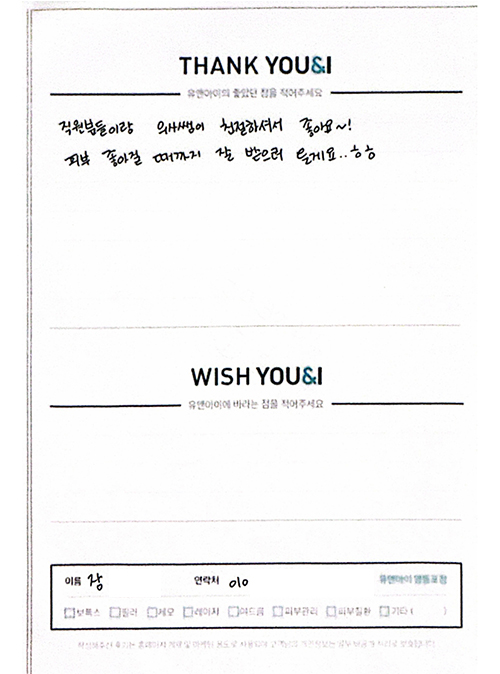 THANK YOU&I
유앤아이의 좋았던 점을 적어주세요
직원분들이랑 의사쌤이 친절하셔서 좋아요~!
피부 좋아질 때까지 잘 받으러 올게요..ㅎㅎ
WISH YOU&I
유앤아이에 바라는 점을 적어주세요
이름 장 연락처 010 유앤아이 영등포점
보톡스 필러 제모 레이저 여드름 피부관리 피부질환 기타 ( )